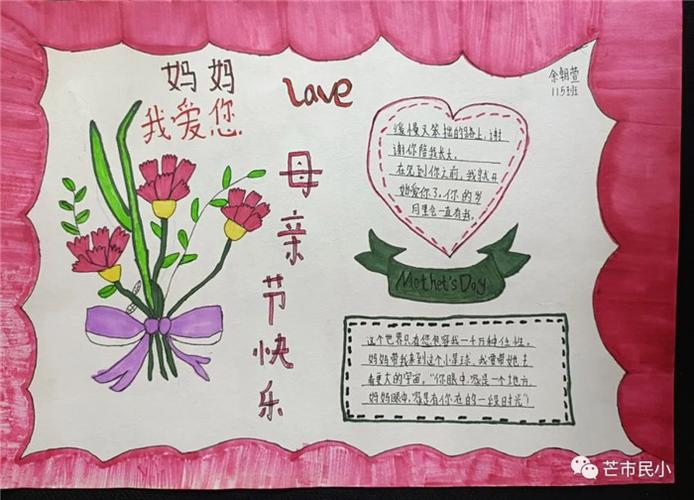 妈妈
我爱您
Love
余朝萱
115班
母亲节快乐
缓慢又笨拙的路上,谢
谢你陪我长大。
在见到你之前,我就开
始爱你了,你的岁
月里会一直有我。
Mother's Day
这个世界只有您包容我一千万种任性。
妈妈带我来到这个小星球,我要带她去
看更大的宇宙。“你眼中,家是一个地方
妈妈眼中,家是有你在的一段时光”)
芒市民小